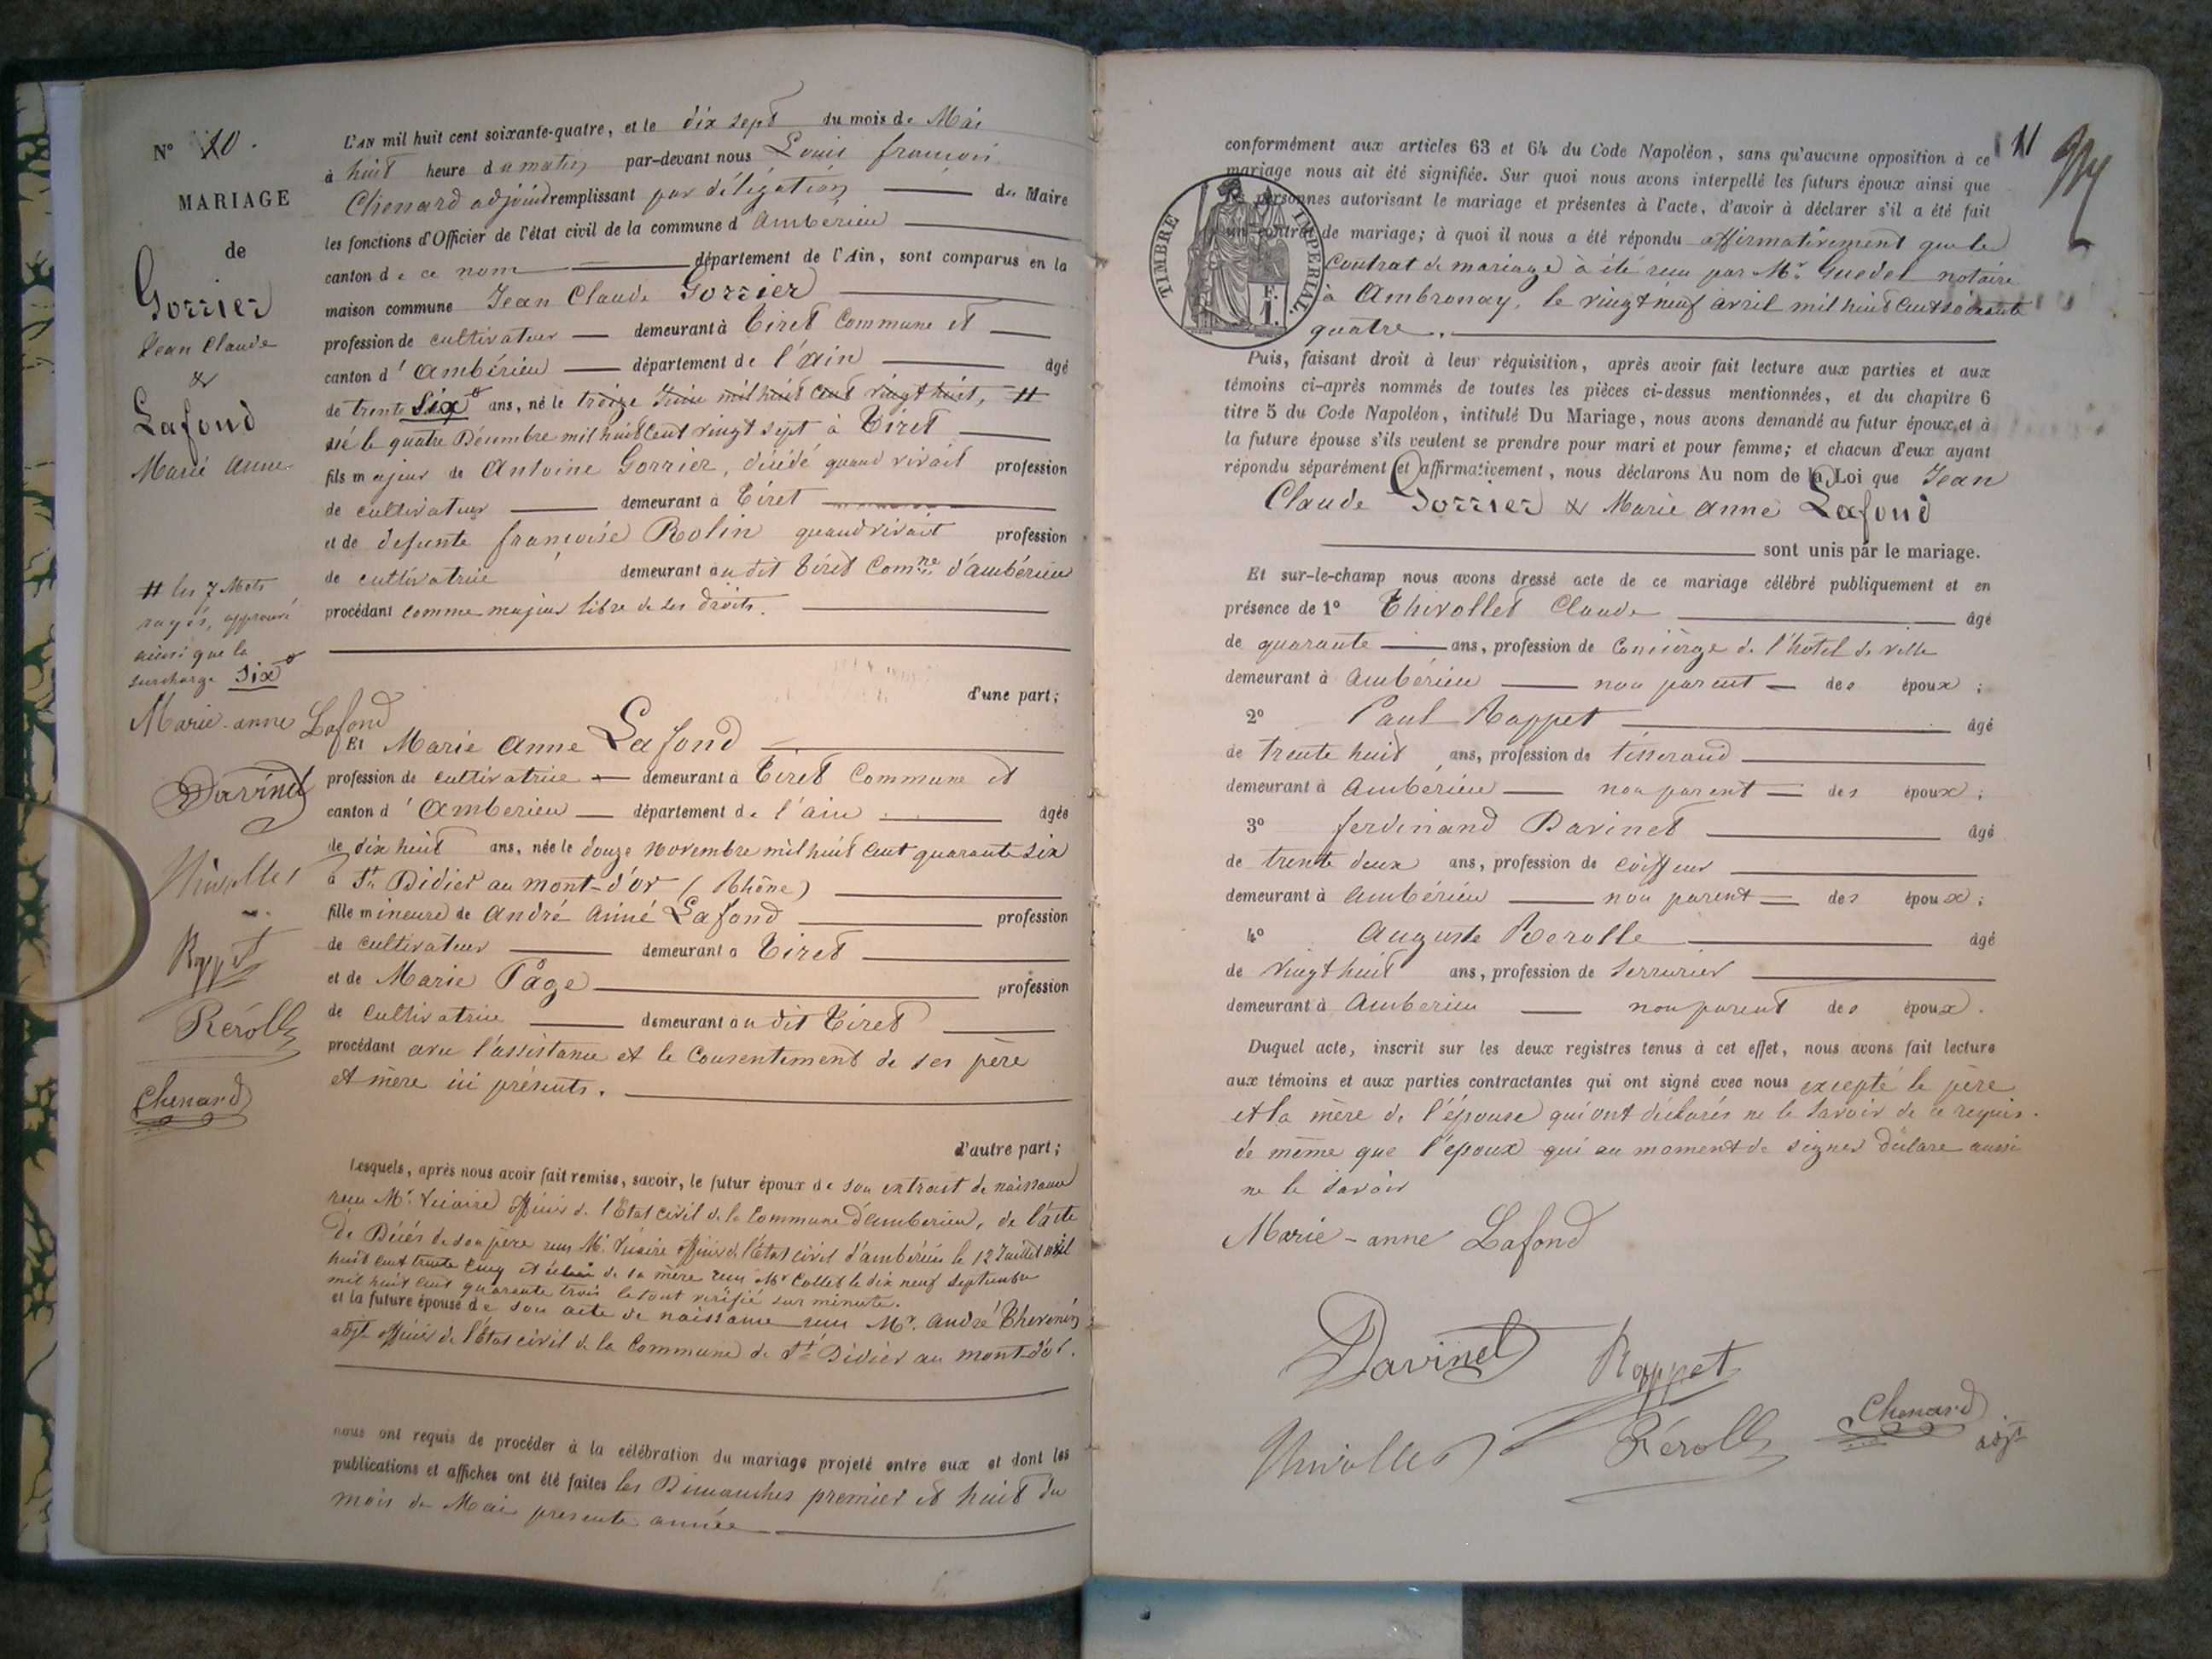 N° 10.
MARIAGE
de
Gorrier
Jean Claude
&
Lafond
Marie Anne
# les 7 Mots
rayés, approuvé
ainsi que la
surcharge Six
Marie-anne Lafond
Davinet
Thivollet
Rappet
Rérolle
Chenard
L'AN mil huit cent soixante-quatre, et le dix sept du mois de Mai
à huit heure du matin par-devant nous Louis françois
Chenard adjoint remplissant par délégation du Maire
les fonctions d'Officier de l'état civil de la commune d'Ambérieu
canton de ce nom département de l'Ain, sont comparus en la
maison commune Jean Claude Gorrier
profession de cultivateur demeurant à Tiret Commune et
canton d'Ambérieu département de l'ain âgé
de trente Six ans, né le treize Juin mil huit cent vingt huit, #
né le quatre Décembre mil huit cent vingt sept à Tiret
fils majeur de Antoine Gorrier, décédé quand vivait profession
de cultivateur demeurant à Tiret
et de defunte françoise Rolin quand vivait profession
de cultivatrice demeurant au dit Tiret Comne d'ambérieu
procédant comme majeur libre de ses droits.
d'une part;
Et Marie Anne Lafond
profession de cultivatrice demeurant à Tiret Commune et
canton d'Amberieu département de l'ain âgée
de dix huit ans, née le douze novembre mil huit cent quarante six
à St Didier au mont-d'or (Rhône)
fille mineure de André Aimé Lafond profession
de cultivateur demeurant à Tiret
et de Marie Page profession
de cultivatrice demeurant au dit Tiret
procédant avec l'assistance et le Consentement de ses père
et mère ici présents.
d'autre part;
Lesquels, après nous avoir fait remise, savoir, le futur époux de son extrait de naissance
reçu Mr. officier de l'Etat civil de la Commune d'amberieu, de l'acte
de Décès de son père reçu Mr. officier de l'Etat civil d'ambérieu le 12 Juillet mil
huit cent trente cinq et celui de sa mère reçu Mr Collet le dix neuf septembre
mil huit cent quarante trois le tout vérifié sur minute.
et la future épouse de son acte de naissance reçu Mr. André Thevenin
adjt officier de l'Etat civil de la Commune de St Didier au mont-d'or.
nous ont requis de procéder à la célébration du mariage projeté entre eux et dont les
publications et affiches ont été faites les Dimanches premier et huit du
mois de Mai presente année
11
conformément aux articles 63 et 64 du Code Napoléon, sans qu'aucune opposition à ce
mariage nous ait été signifiée. Sur quoi nous avons interpellé les futurs époux ainsi que
les personnes autorisant le mariage et présentes à l'acte, d'avoir à déclarer s'il a été fait
un contrat de mariage; à quoi il nous a été répondu affirmativement que le
contrat de mariage à été reçu par Mr. Guedel notaire
à Ambronay, le vingt neuf avril mil huit cent soixante
quatre.
TIMBRE IMPERIAL
F.
1.
Puis, faisant droit à leur réquisition, après avoir fait lecture aux parties et aux
témoins ci-après nommés de toutes les pièces ci-dessus mentionnées, et du chapitre 6
titre 5 du Code Napoléon, intitulé Du Mariage, nous avons demandé au futur époux et à
la future épouse s'ils veulent se prendre pour mari et pour femme; et chacun d'eux ayant
répondu séparément et affirmativement, nous déclarons Au nom de la Loi que Jean
Claude Gorrier & Marie anne Lafond
sont unis par le mariage.
Et sur-le-champ nous avons dressé acte de ce mariage célébré publiquement et en
présence de 1° Thivollet Claude âgé
de quarante ans, profession de Concièrge de l'hôtel de ville
demeurant à Ambérieu non parent des époux;
2° Paul Rappet âgé
de trente huit ans, profession de tisserand
demeurant à Ambérieu non parent des époux;
3° ferdinand Davinet âgé
de trente deux ans, profession de coiffeur
demeurant à Ambérieu non parent des époux;
4° Auguste Rerolle âgé
de vingt huit ans, profession de serrurier
demeurant à Amberieu non parent des époux.
Duquel acte, inscrit sur les deux registres tenus à cet effet, nous avons fait lecture
aux témoins et aux parties contractantes qui ont signé avec nous excepté le père
et la mère de l'épouse qui ont déclarés ne le savoir de ce requis.
de même que l'époux qui au moment de signer déclare aussi
ne le savoir
Marie-anne Lafond
Davinet Rappet
Thivollet Rérolle Chenard adjt